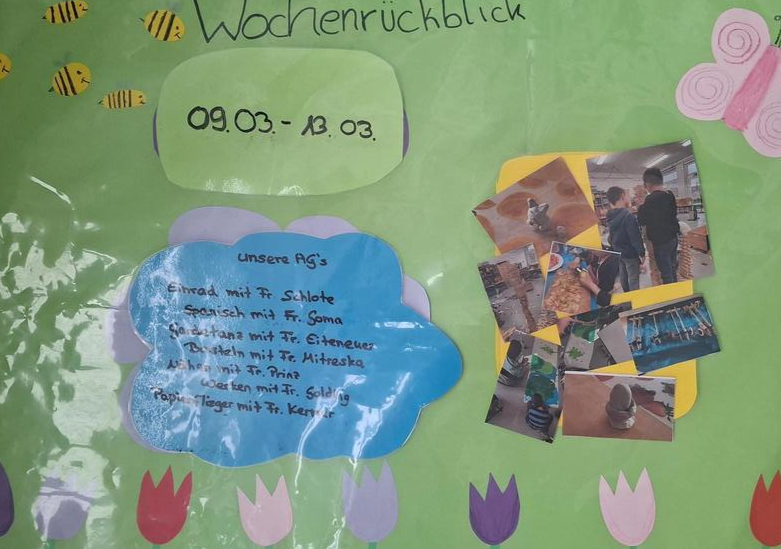 Wochenrückblick
09.03. - 13.03.
unsere AG's
Einrad mit Fr Schlote
Spanisch mit Fr. Goma
Gardetanz mit Fr. Eiteneuer
Basteln mit Fr. Mitreska
Nähen mit Fr. Prinz
Werken mit Fr. Golding
Papierflieger mit Fr.